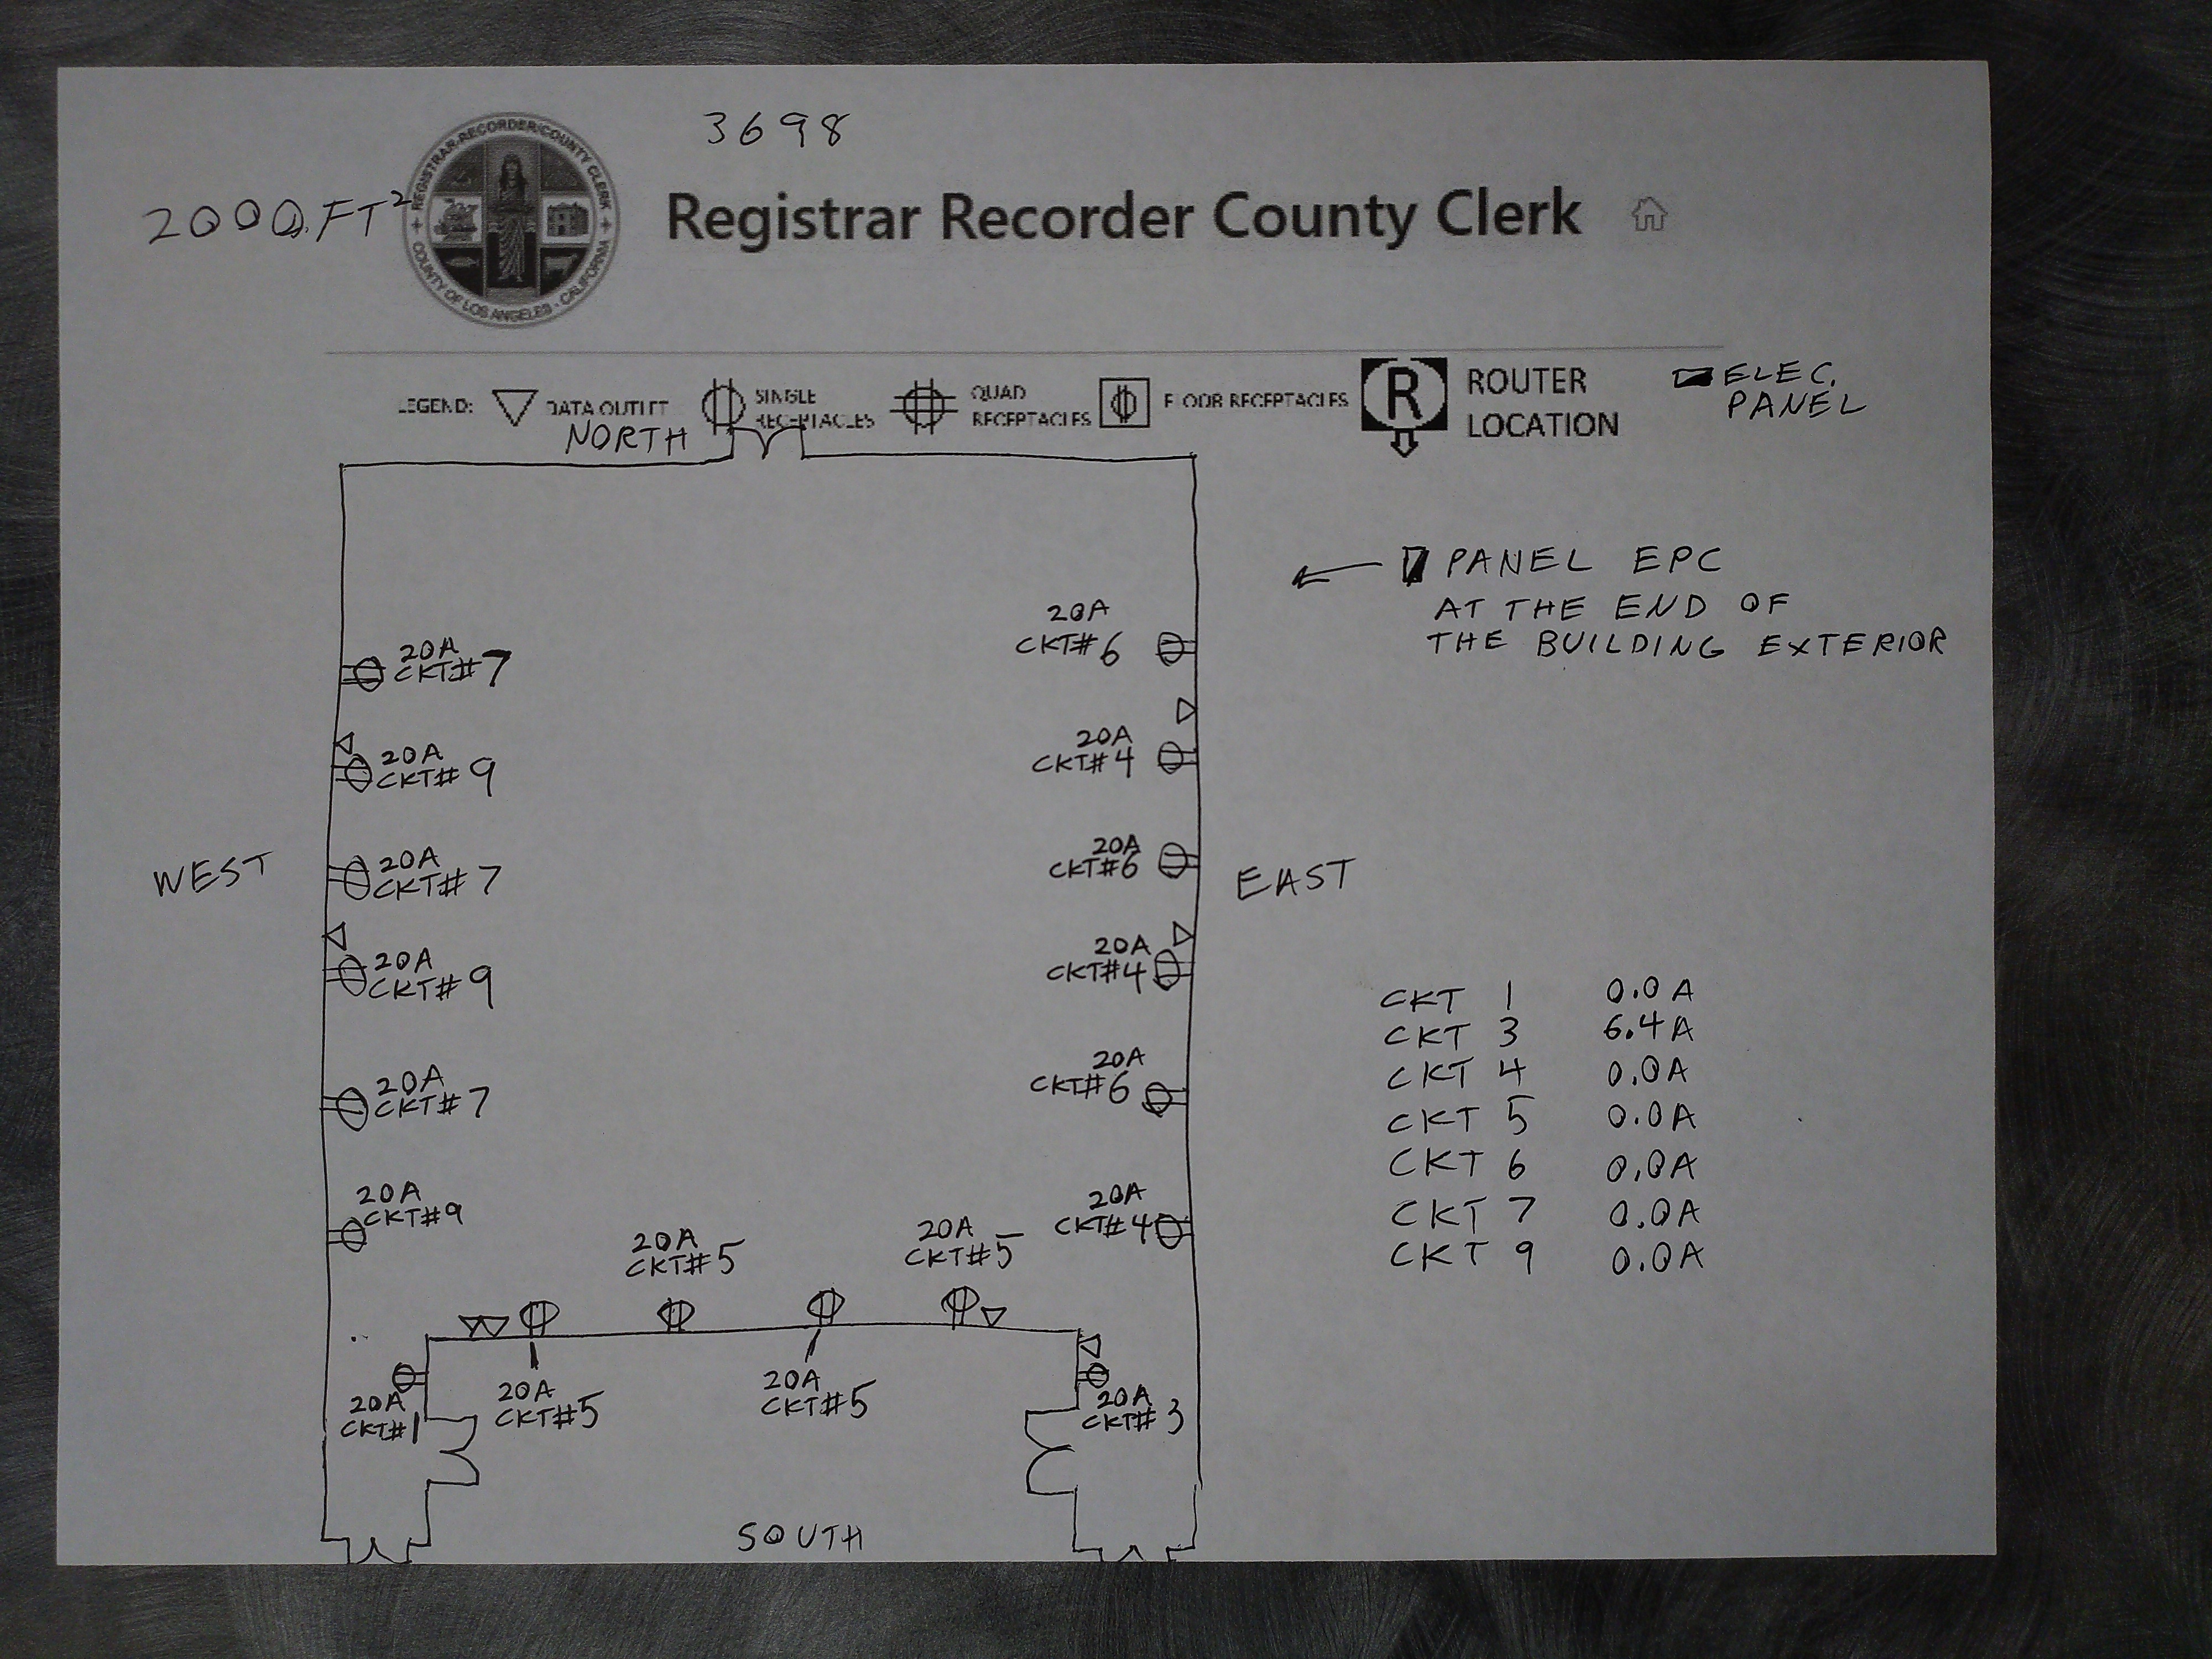 3698
2000 FT²
REGISTRAR-RECORDER/COUNTY CLERK
COUNTY OF LOS ANGELES - CALIFORNIA
Registrar Recorder County Clerk
LEGEND:
DATA OUTLET
SINGLE
RECEPTACLES
QUAD
RECEPTACLES
FLOOR RECEPTACLES
R
ROUTER
LOCATION
ELEC.
PANEL
NORTH
PANEL EPC
AT THE END OF
THE BUILDING EXTERIOR
20A
CKT#7
20A
CKT#6
20A
CKT#9
20A
CKT#4
WEST
20A
CKT#7
20A
CKT#6
EAST
20A
CKT#9
20A
CKT#4
20A
CKT#7
20A
CKT#6
20A
CKT#9
20A
CKT#4
20A
CKT#5
20A
CKT#5
20A
CKT#1
20A
CKT#5
20A
CKT#5
20A
CKT#3
SOUTH
CKT 1 0.0A
CKT 3 6.4A
CKT 4 0.0A
CKT 5 0.0A
CKT 6 0.0A
CKT 7 0.0A
CKT 9 0.0A